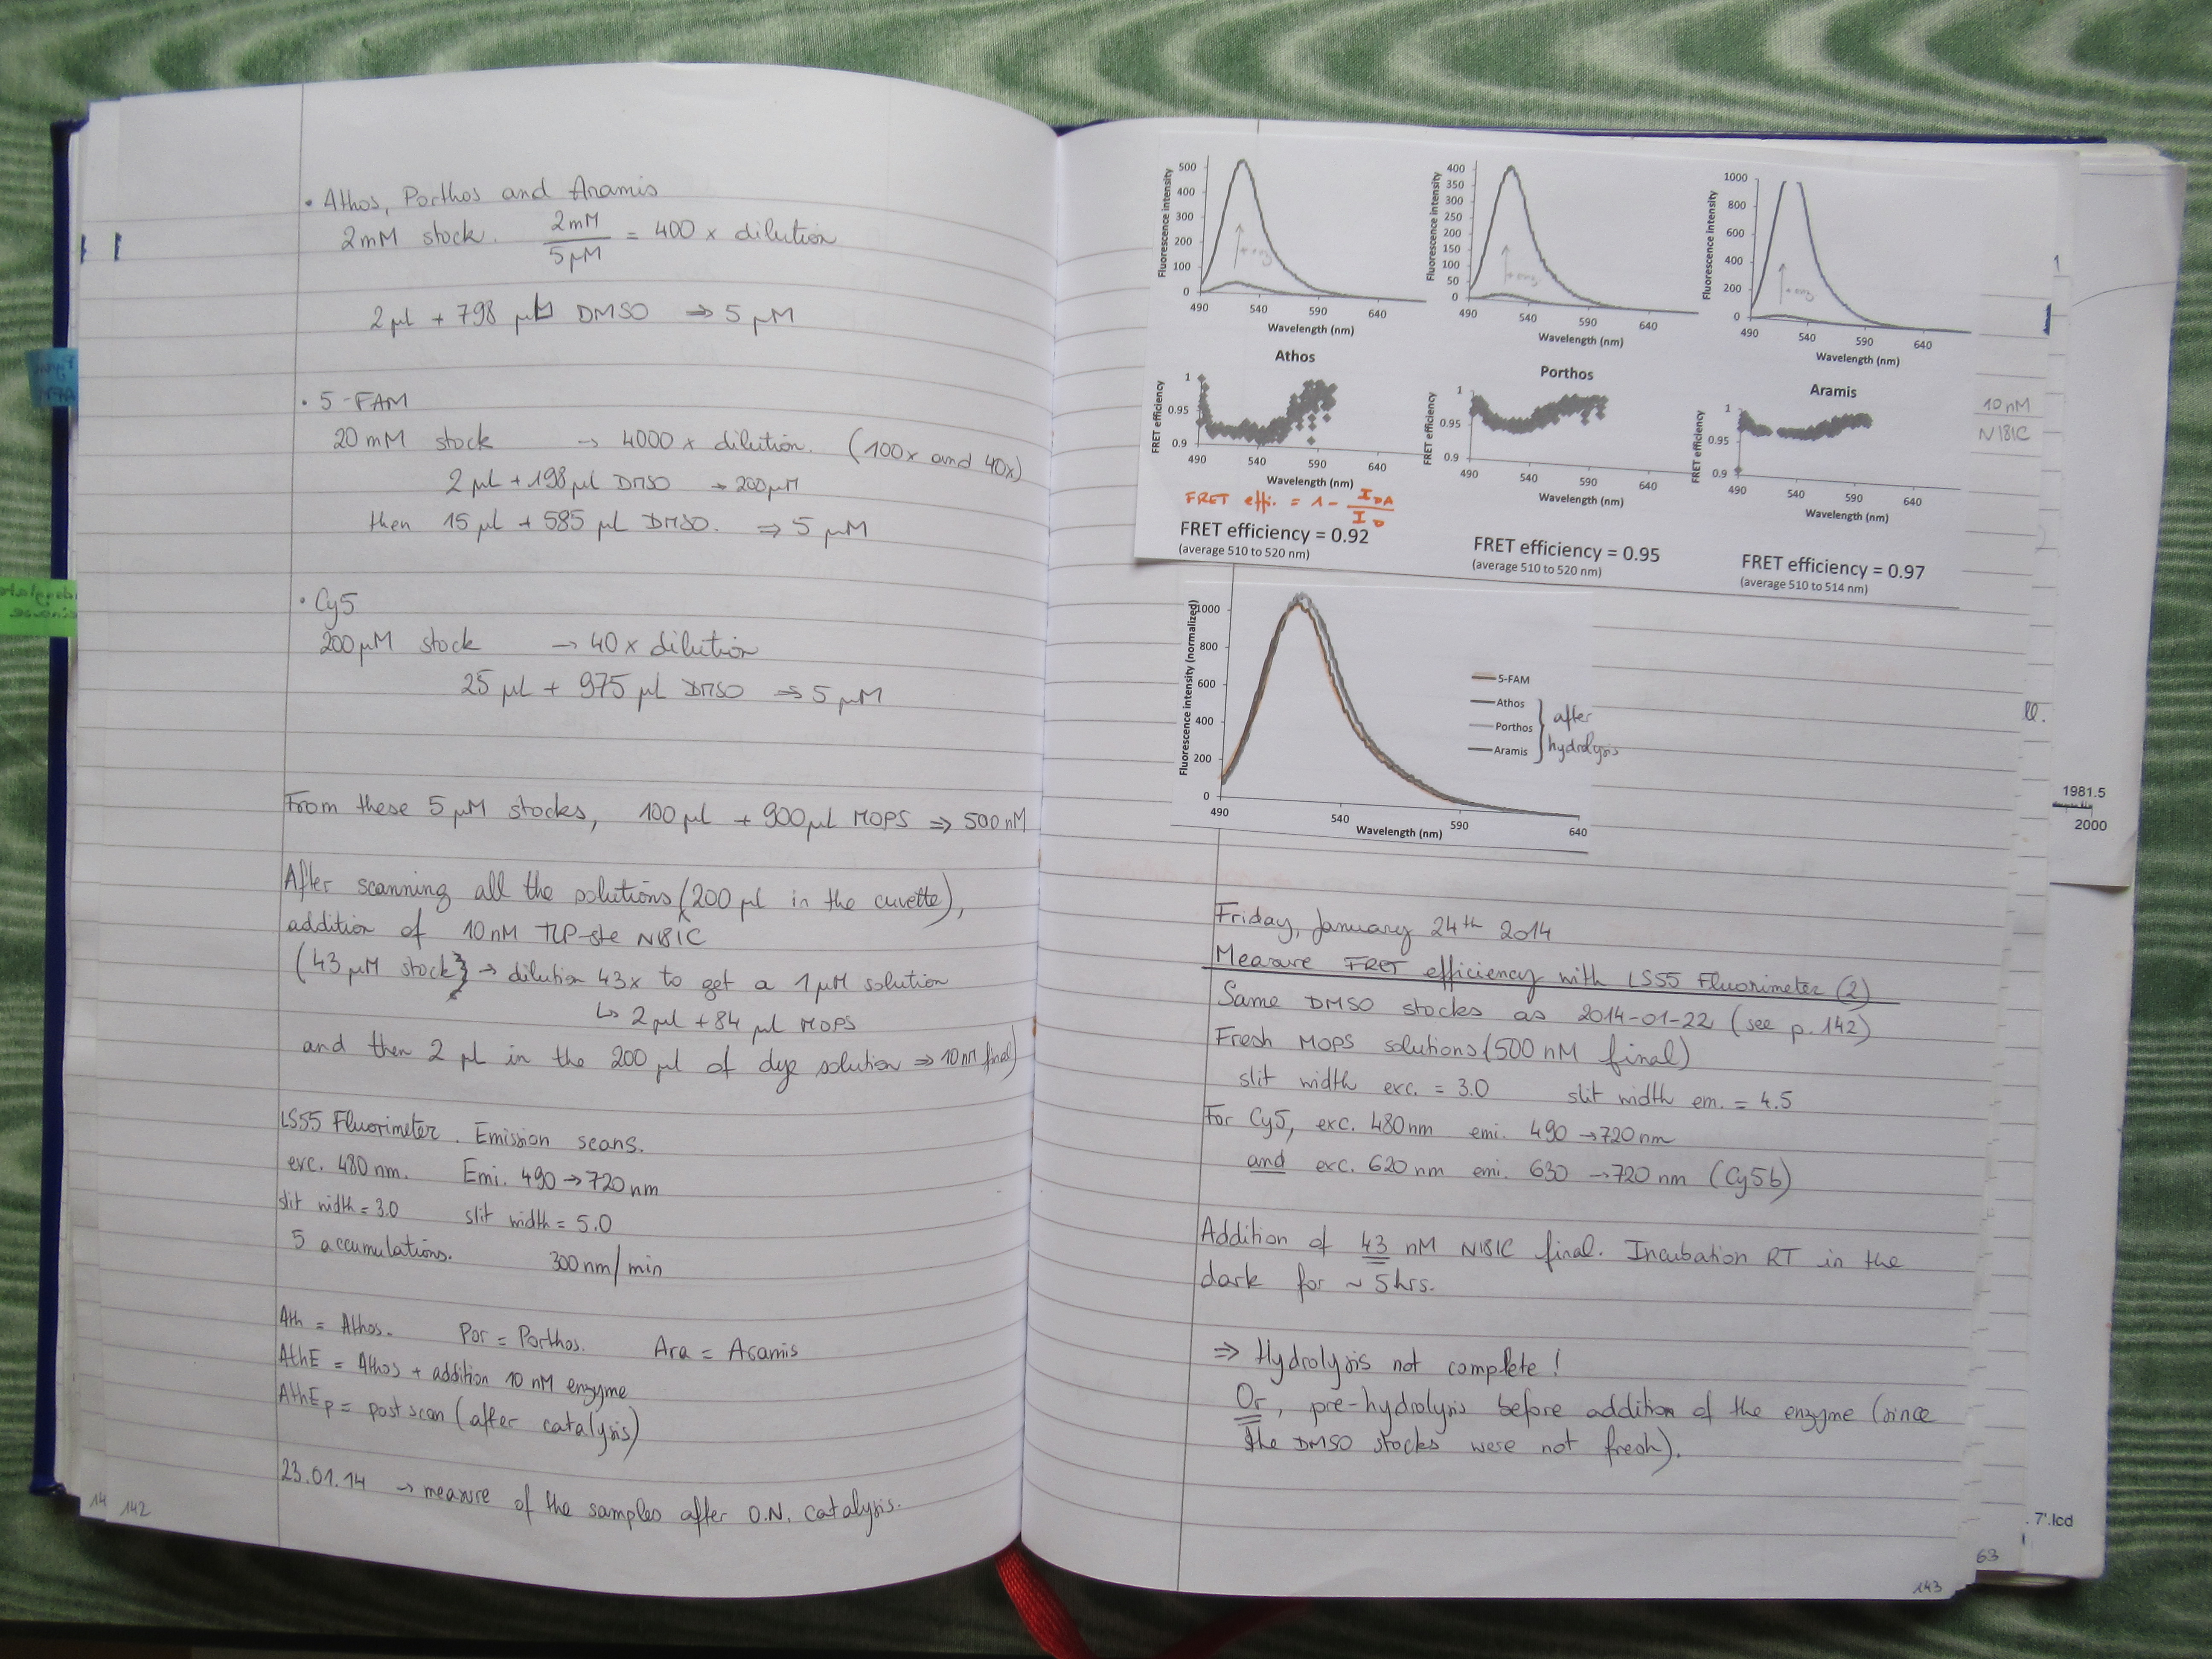 • Athos, Porthos and Aramis
2mM stock. 2mM / 5µM = 400 x dilution
2µl + 798 µl DMSO ⇒ 5 µM
• 5-FAM
20 mM stock → 4000 x dilution. (100x and 40x)
2µl + 198µl DMSO → 200µM
then 15µl + 585 µl DMSO. ⇒ 5 µM
• Cy5
200µM stock → 40x dilution
25 µl + 975 µl DMSO ⇒ 5 µM
From these 5 µM stocks, 100µl + 900µl MOPS ⇒ 500 nM
After scanning all the solutions (200 µl in the cuvette),
addition of 10nM N181C
(43µM stock → dilution 43x to get a 1µM solution
↳ 2µl + 84 µl MOPS
and then 2 µl in the 200 µl of dye solution ⇒ 10nM final)
LS55 Fluorimeter. Emission scans.
exc. 480 nm. Emi. 490 → 720 nm
slit width = 3.0 slit width = 5.0
5 accumulations. 300nm/min
Ath = Athos. Por = Porthos. Ara = Aramis
AthE = Athos + addition 10 nM enzyme
AthEp = post scan (after catalysis)
23.01.14 → measure of the samples after O.N. catalysis.
14 142
Fluorescence intensity
500
400
300
200
100
0
+ enz
490 540 590 640
Wavelength (nm)
Fluorescence intensity
400
350
300
250
200
150
100
50
0
+ enz
490 540 590 640
Wavelength (nm)
Fluorescence intensity
1000
800
600
400
200
0
+ enz
490 540 590 640
Wavelength (nm)
Athos
FRET efficiency
1
0.95
0.9
490 540 590 640
Wavelength (nm)
Porthos
FRET efficiency
1
0.95
0.9
490 540 590 640
Wavelength (nm)
Aramis
FRET efficiency
1
0.95
0.9
490 540 590 640
Wavelength (nm)
FRET effi. = 1 - I DA / I D
FRET efficiency = 0.92
(average 510 to 520 nm)
FRET efficiency = 0.95
(average 510 to 520 nm)
FRET efficiency = 0.97
(average 510 to 514 nm)
10nM
N181C
Fluorescence intensity (normalized)
1000
800
600
400
200
0
490 540 590 640
Wavelength (nm)
5-FAM
Athos
Porthos
Aramis
after
hydrolysis
Friday, January 24th 2014
Measure FRET efficiency with LS55 Fluorimeter (2)
Same DMSO stocks as 2014-01-22 (see p. 142)
Fresh MOPS solutions (500 nM final)
slit width exc. = 3.0 slit width em. = 4.5
For Cy5, exc. 480nm emi. 490 → 720nm
and exc. 620nm emi. 630 → 720nm (Cy5b)
Addition of 43 nM N181C final. Incubation RT in the
dark for ~ 5hrs.
⇒ Hydrolysis not complete!
Or, pre-hydrolysis before addition of the enzyme (since
the DMSO stocks were not fresh).
143
63
1
ll.
1981.5
2000
7'.lcd